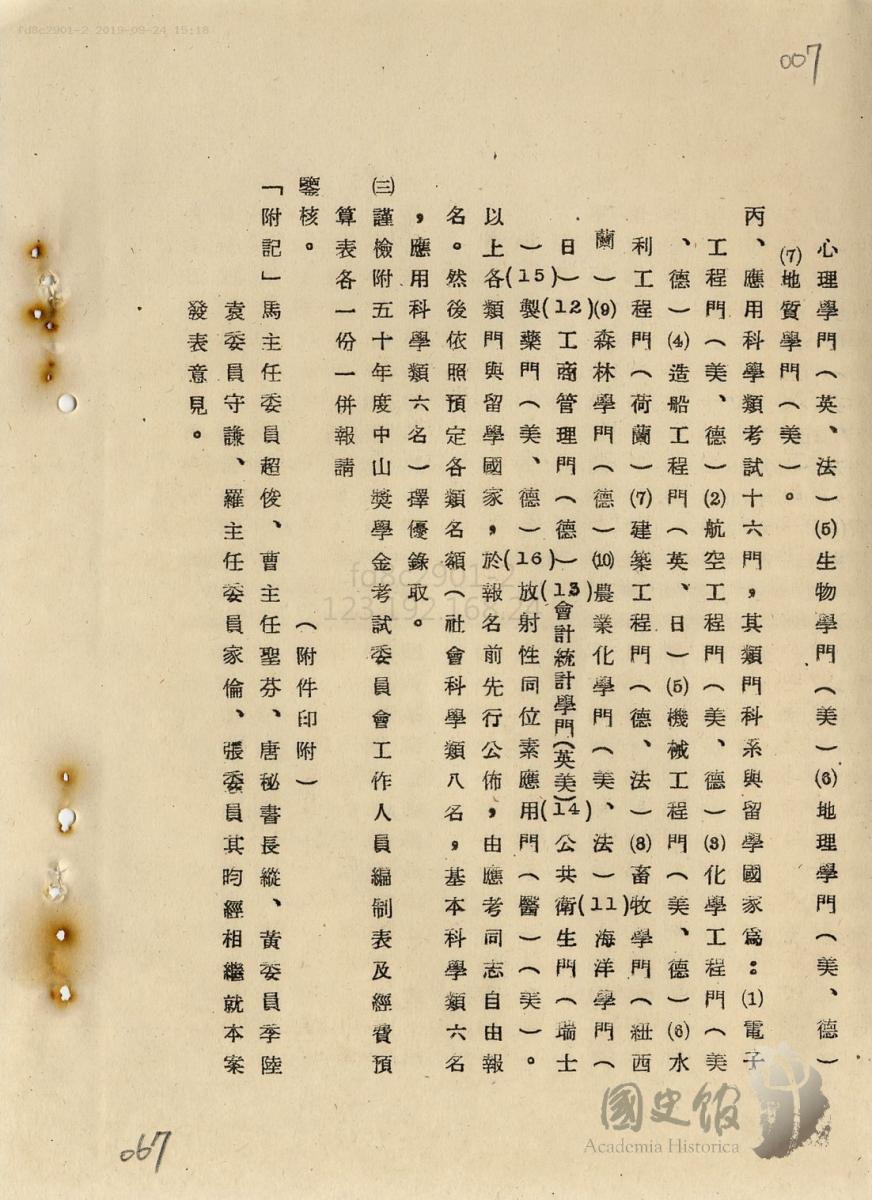 fd8c2901-2 2019-09-24 15:18
007
心理學門（英、法）(5)生物學門（美）(6)地理學門（美、德）
(7)地質學門（美）。
丙、應用科學類考試十六門，其類門科系與留學國家爲：(1)電子
工程門（美、德）(2)航空工程門（美、德）(3)化學工程門（美
、德）(4)造船工程門（英、日）(5)機械工程門（美、德）(6)水
利工程門（荷蘭）(7)建築工程門（德、法）(8)畜牧學門（紐西
蘭）(9)森林學門（德）(10)農業化學門（美、法）(11)海洋學門（
日）(12)工商管理門（德）(13)會計統計學門（英美）(14)公共衛生門（瑞士
）(15)製藥門（美、德）(16)放射性同位素應用門（醫）（美）。
以上各類門與留學國家，於報名前先行公佈，由應考同志自由報
名。然後依照預定各類名額（社會科學類八名，基本科學類六名
，應用科學類六名）擇優錄取。
㈢謹檢附五十年度中山獎學金考試委員會工作人員編制表及經費預
算表各一份一併報請
鑒核。
（附件印附）
「附記」馬主任委員超俊、曹主任聖芬、唐秘書長縱、黃委員季陸
袁委員守謙、羅主任委員家倫、張委員其昀經相繼就本案
發表意見。
fd8c2901-2
067
國史館
Academia Historica